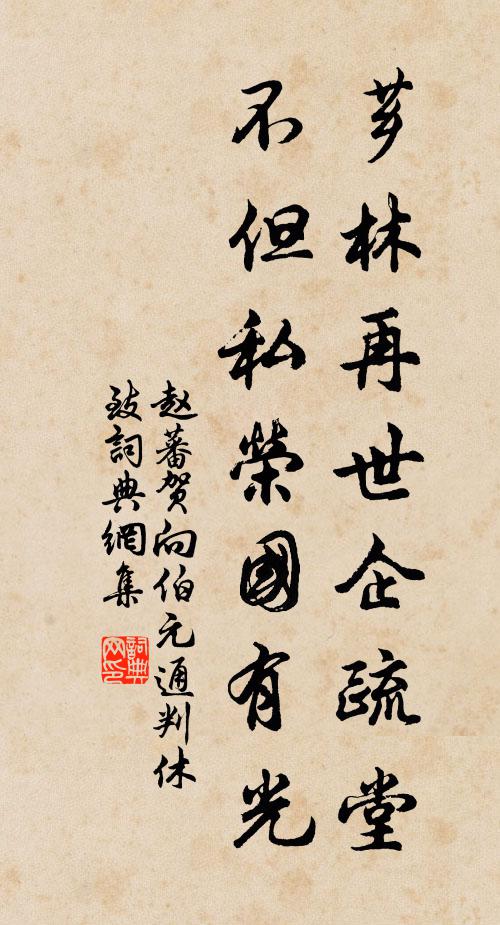 芗林再世企疏堂
不但私榮國有光
赵蕃贺向伯元通判休
致詞典網集
詞典
网印